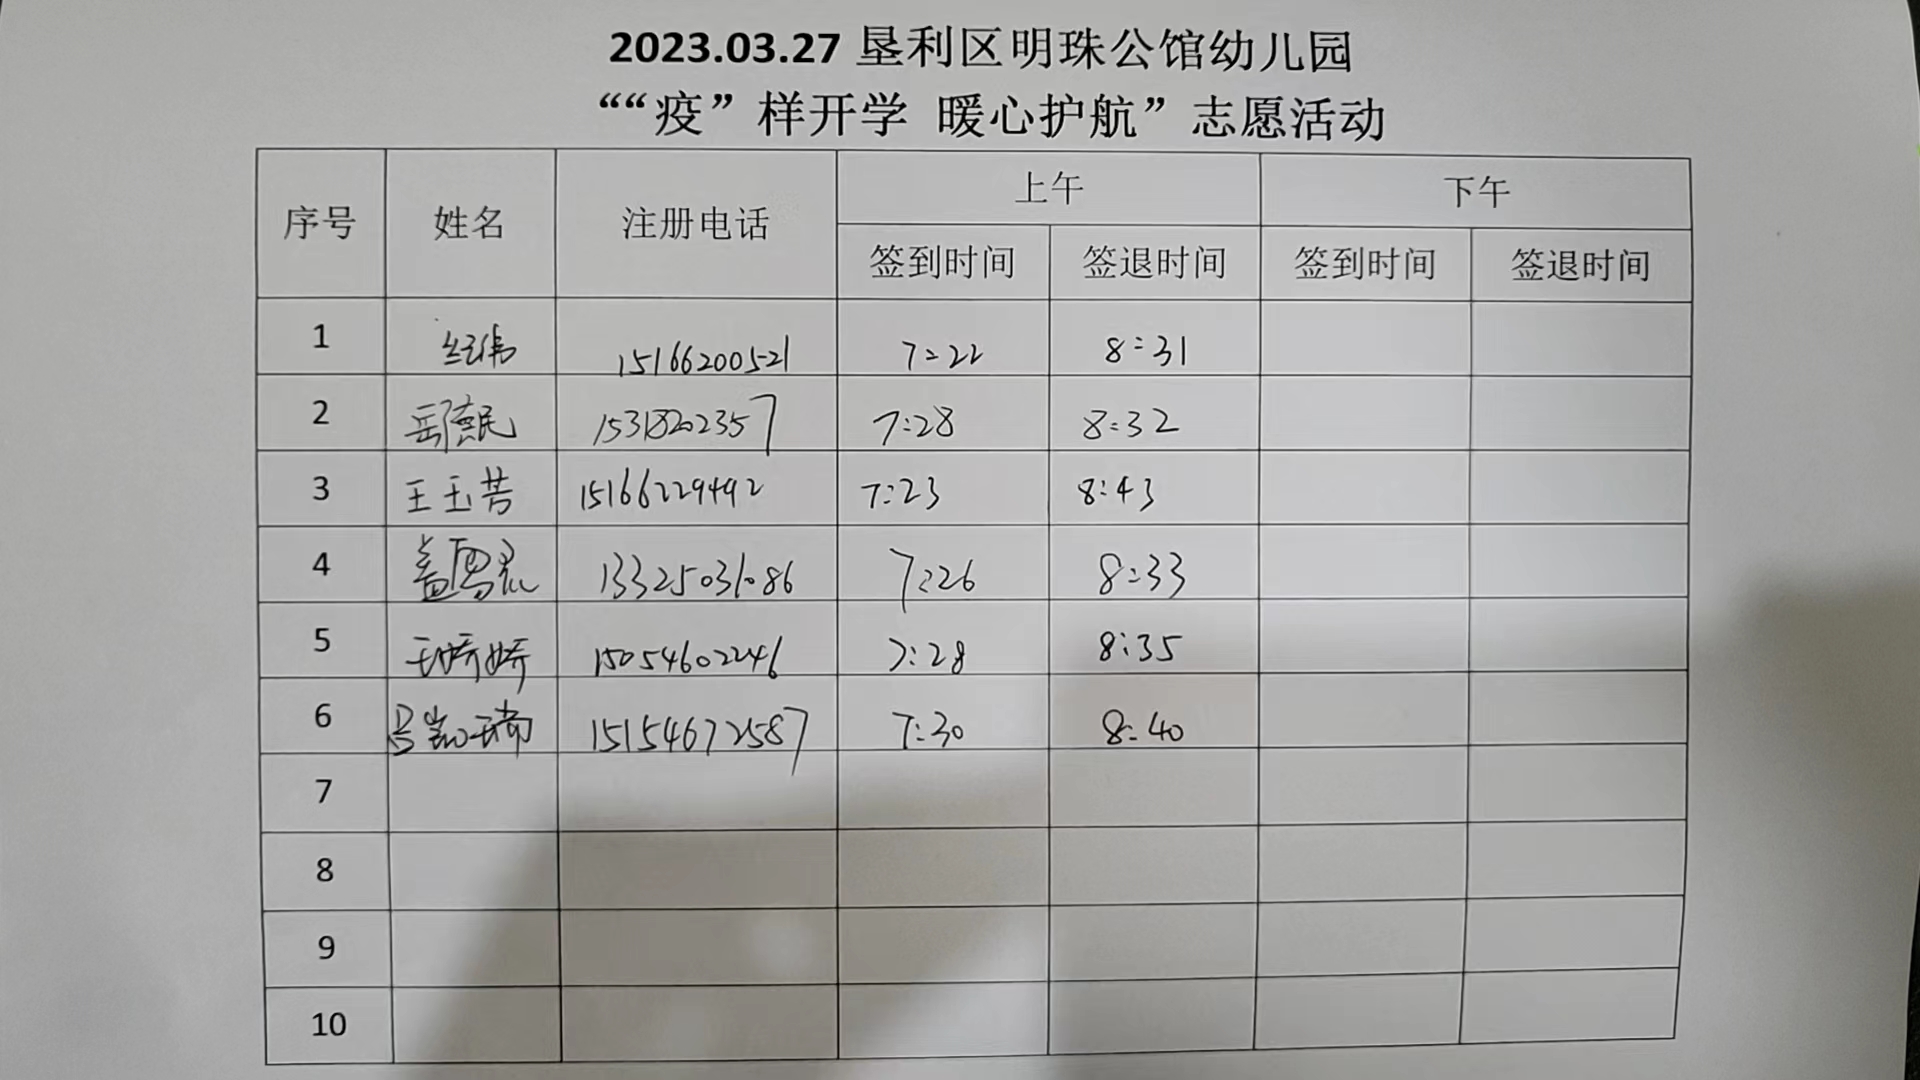 2023.03.27 垦利区明珠公馆幼儿园
““疫”样开学 暖心护航”志愿活动
序号 姓名 注册电话 上午 下午
签到时间 签退时间 签到时间 签退时间
1 15166200521 7:22 8:31
2 岳德民 15318202357 7:28 8:32
3 王玉芳 15166229492 7:23 8:43
4 13325031086 7:26 8:33
5 王娇娇 15054602246 7:28 8:35
6 15154672587 7:30 8:40
7
8
9
10